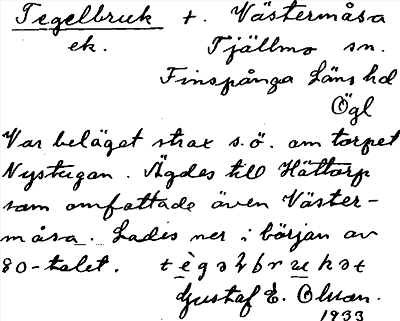 Tegelbruk t. Västermåsa
ek. Tjällmo sn.
Finspånga Läns hd
Ögl
Var beläget strax s.ö. om torpet
Nystugan. Ägdes till Hättorp
som omfattade även Väster-
måsa. Lades ner i början av
80-talet. tègəlbrukət
Gustaf E. Olson.
1933